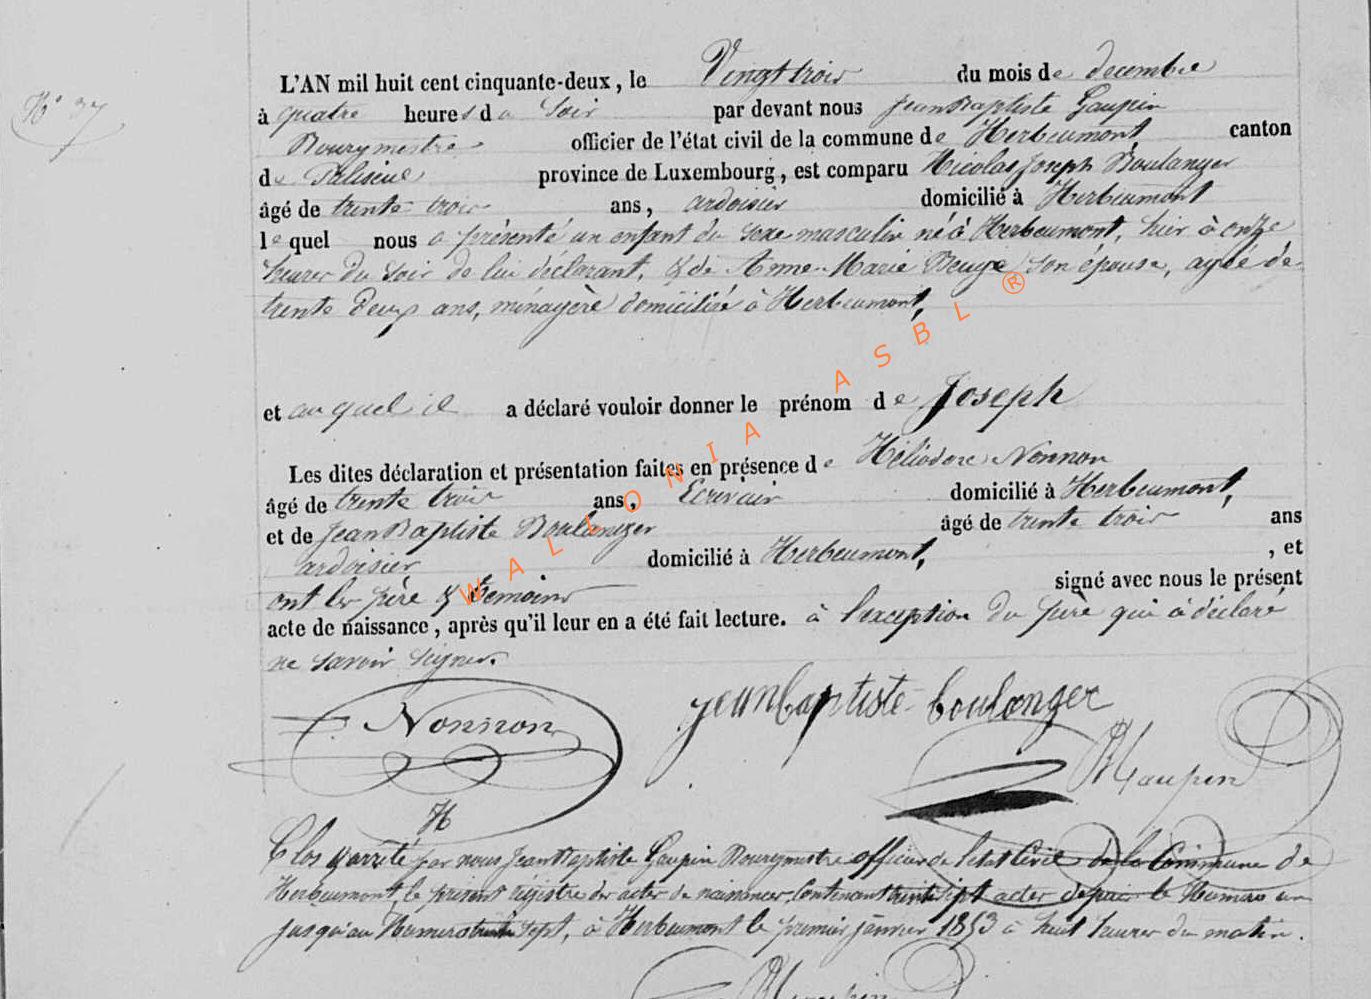 N° 37
L'AN mil huit cent cinquante-deux, le Vingt trois du mois de decembre
à quatre heures du Soir par devant nous Jean Baptiste Gaupin
Bourgmestre officier de l'état civil de la commune de Herbeumont, canton
de Paliseul province de Luxembourg, est comparu Nicolas Joseph Boulanger
âgé de trente trois ans, ardoisier domicilié à Herbeumont
lequel nous a présenté un enfant du sexe masculin né à Herbeumont, hier à onze
heures du soir de lui déclarant, & de Anne-Marie son épouse, agée de
trente deux ans, ménagère domiciliée à Herbeumont,
et auquel il a déclaré vouloir donner le prénom de Joseph
Les dites déclaration et présentation faites en présence de Héliodore Nonnon
âgé de trente trois ans, Ecrivain domicilié à Herbeumont,
et de Jean Baptiste Boulanger âgé de trente trois ans
ardoisier domicilié à Herbeumont, , et
ont les père & temoins signé avec nous le présent
acte de naissance, après qu'il leur en a été fait lecture. à l'exception du père qui à déclaré
ne savoir signer.
Nonnon
jeanbaptiste boulanger
Gaupin
H
Clos & arrêté par nous Jean Baptiste Gaupin Bourgmestre officier de l'etat Civil de la Commune de
Herbeumont, le présent régistre des actes de naissances, Contenant trente sept actes depuis le Numero un
jusqu'au Numero trente sept, à Herbeumont le premier janvier 1853 à huit heures du matin.
Gaupin
WALLONIA ASBL ®